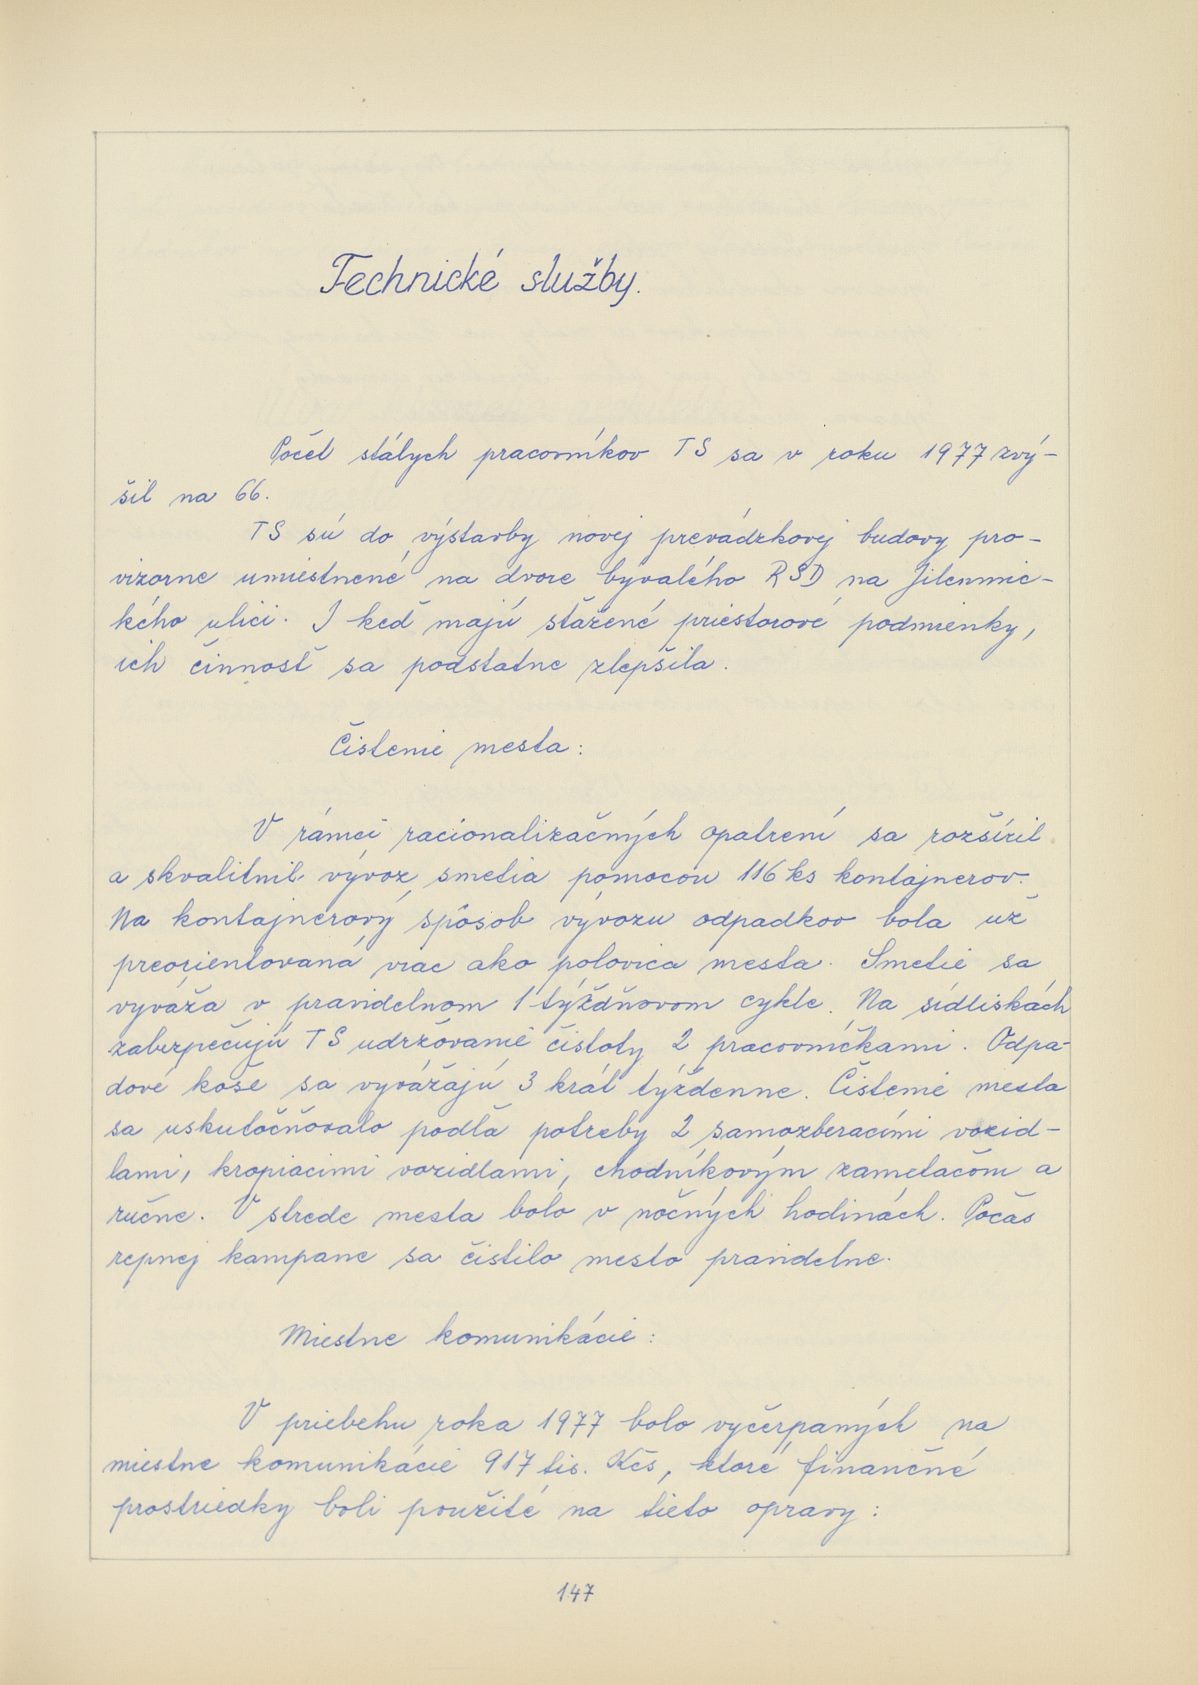 Technické služby.
Počet stálych pracovníkov TS sa v roku 1977 zvý-
šil na 66.
TS sú do výstavby novej prevádzkovej budovy pro-
vizorne umiestnené na dvore bývalého RSD na Jilemnic-
kého ulici. I keď majú sťažené priestorové podmienky,
ich činnosť sa podstatne zlepšila.
Čistenie mesta:
V rámci racionalizačných opatrení sa rozšíril
a skvalitnil vývoz smetia pomocou 116 ks kontajnerov.
Na kontajnerový spôsob vývozu odpadkov bola už
preorientovaná viac ako polovica mesta. Smetie sa
vyváža v pravidelnom 1 týždňovom cykle. Na sídliskách
zabezpečujú TS udržovanie čistoty 2 pracovníčkami. Odpa-
dové koše sa vyvážajú 3 krát týždenne. Čistenie mesta
sa uskutočňovalo podľa potreby 2 samozberacími vozid-
lami, kropiacimi vozidlami, chodníkovým zametačom a
ručne. V strede mesta bolo v nočných hodinách. Počas
repnej kampane sa čistilo mesto pravidelne.
Miestne komunikácie:
V priebehu roka 1977 bolo vyčerpaných na
miestne komunikácie 917 tis. Kčs, ktoré finančné
prostriedky boli použité na tieto opravy:
147